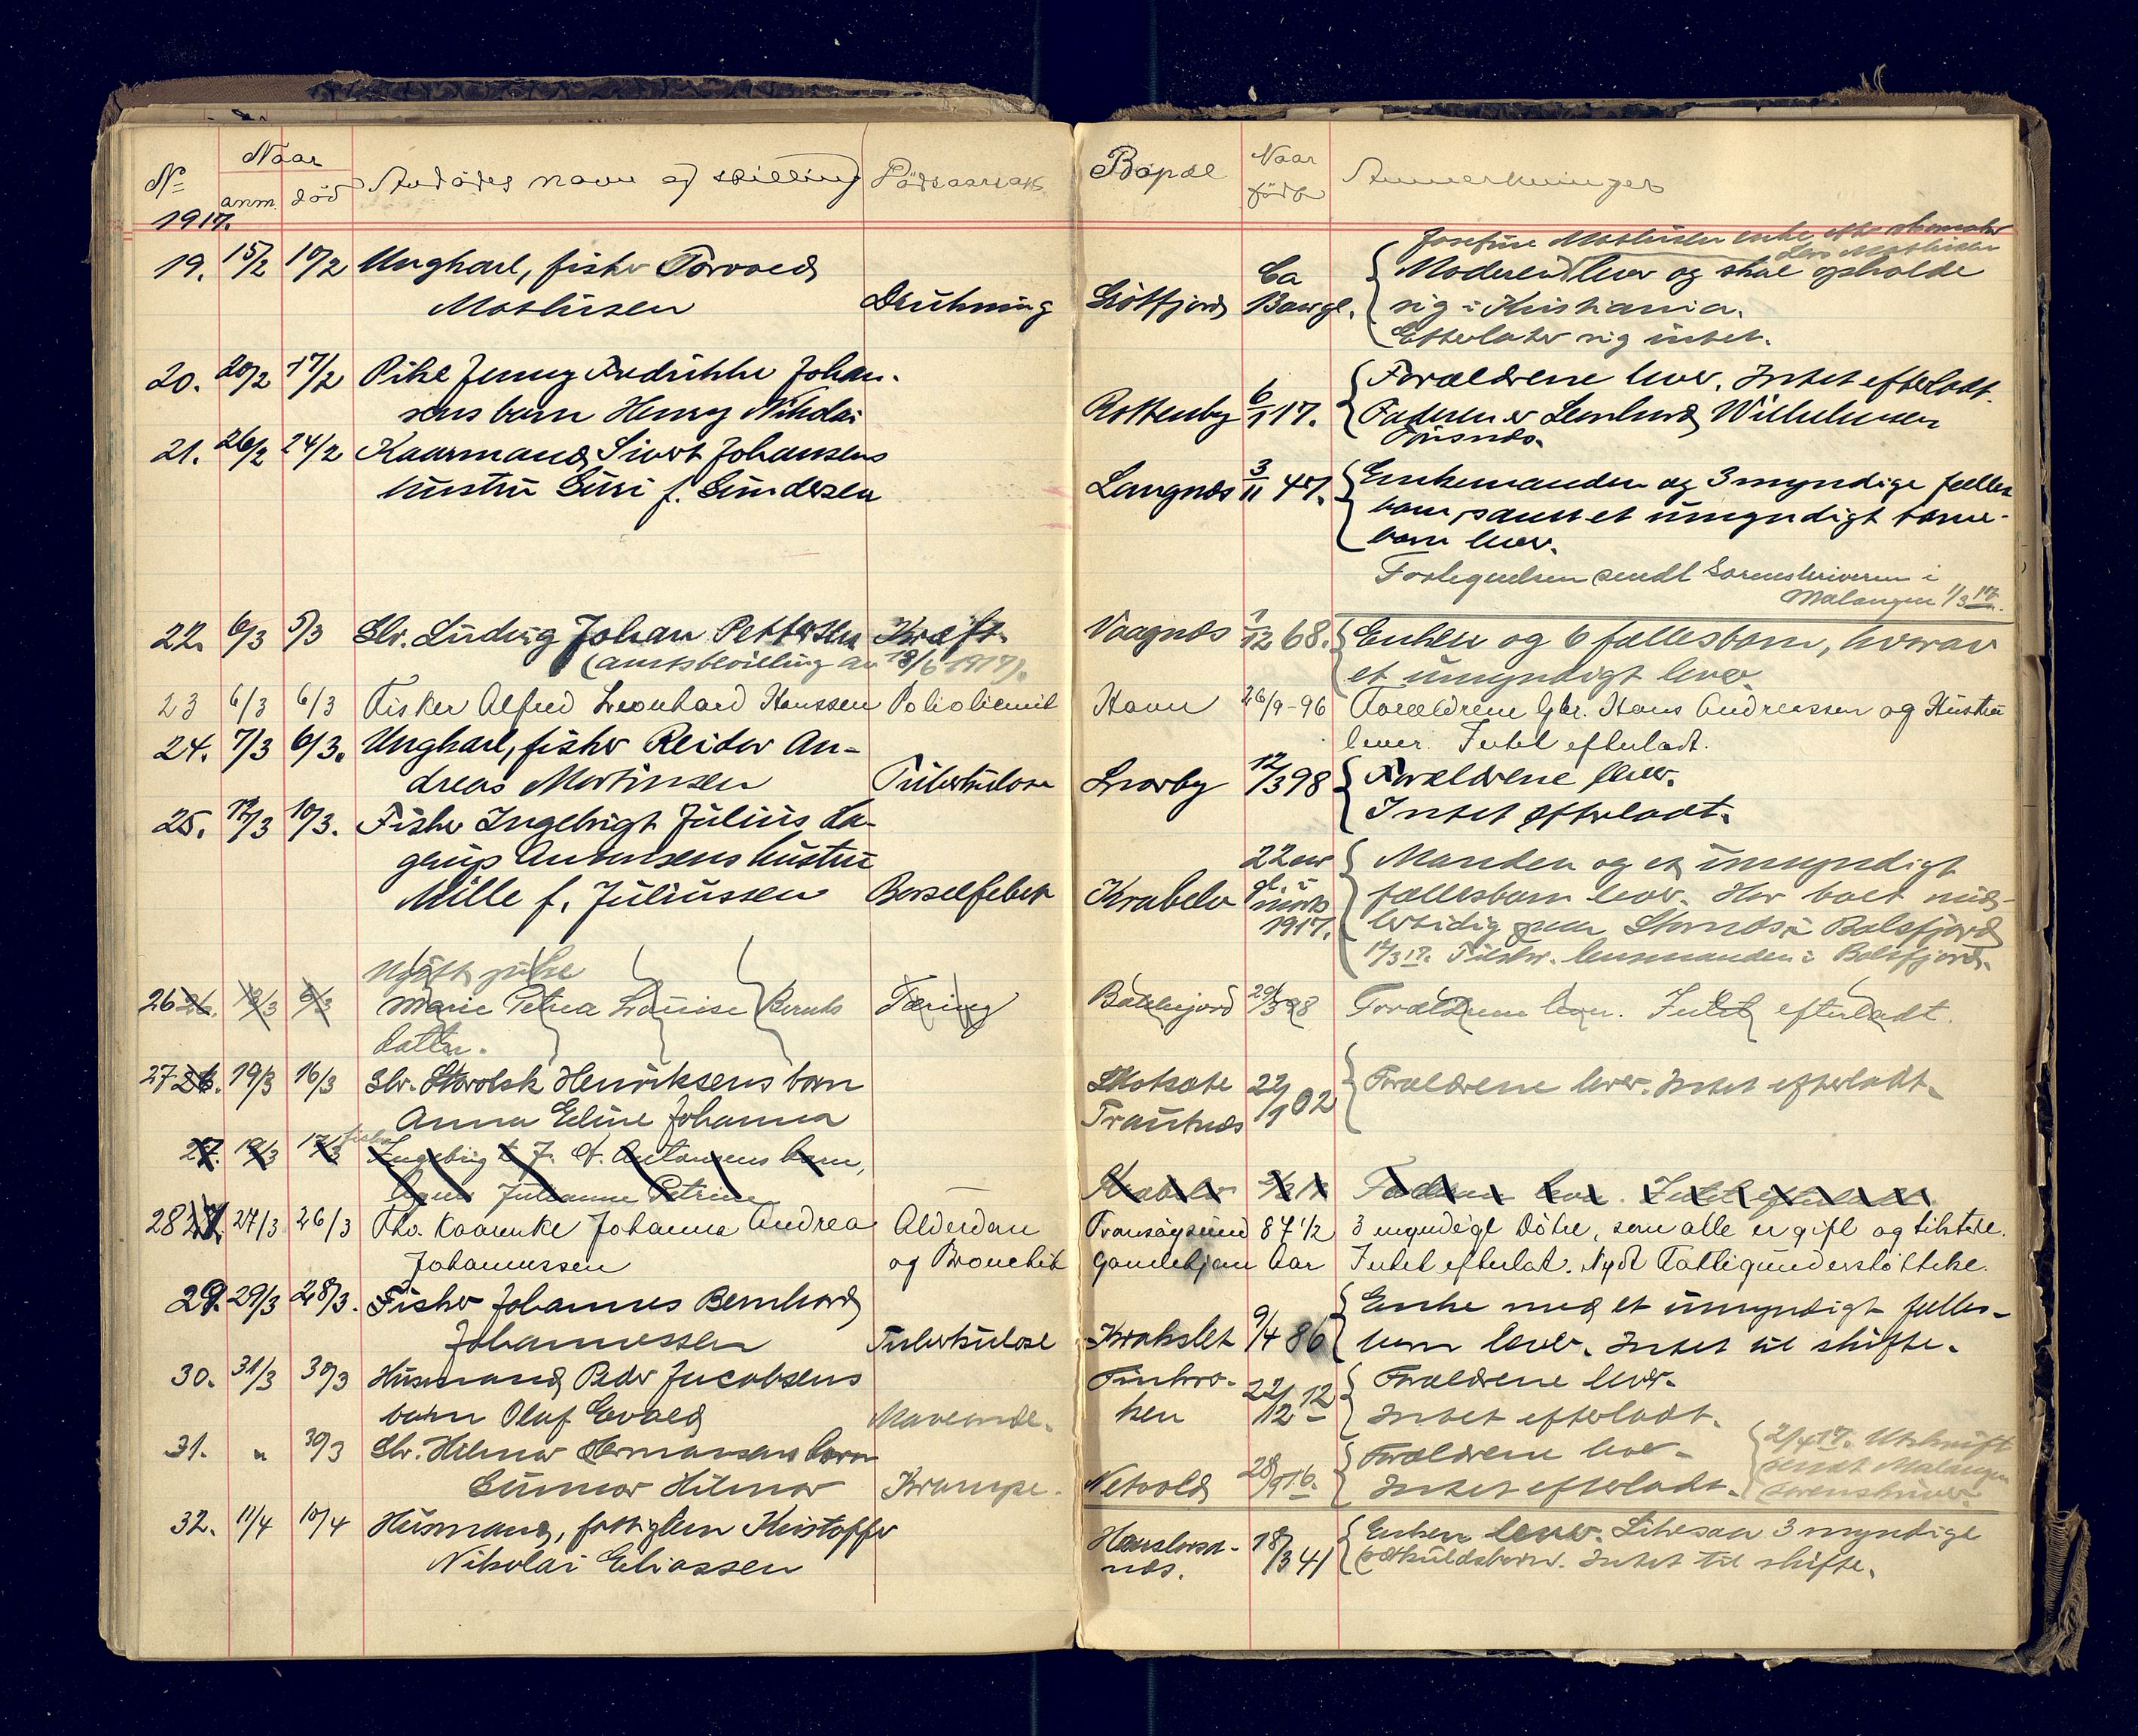 No Naar anm. död Avdödes navn og stilling Dödsaarsak Bopæl Naar född Anmerkninger
1917.
Josefine Mathisen enke efter skomaker
Lars Mathisen
19. 15/2 10/2 Ungkarl, fisker Torvald Ca Moderen lever og skal opholde
Mathisen Drukning 13 aar gl. sig i Kristiania.
Efterlater sig intet.
20. 20/2 17/2 Pike Jenny Fredrikke Johan- Forældrene lever. Intet efterladt.
sens barn Henry Nikolai 6/1 17. Faderen er Wilhelmsen
21. 26/2 24/2 Kaarmand Sivert Johansens Langnes 3/11 47. Enkemanden og 3 myndige fælles
hustru Guri f. Gundersen barn, samt et umyndigt barne-
barn lever.
Fortegnelsen sendt Sorenskriveren i
Malangen 1/3 17.
22. 6/3 5/3 Slr. Ludvig Johan Pettersen Kræft. Vaagnes 1/12 68. Enken og 6 fællesbarn, hvorav
(amtsbevilling av 18/6 1917). et umyndigt lever.
23 6/3 6/3 Fisker Alfred Leonhard Hanssen Havn 26/9-96 Forældrene Gbr. Hans Andreassen og Hustru
lever. Intet efterladt.
24. 7/3 6/3. Ungkarl, fisker Reidar An-
dreas Martinsen Tuberkulose 12/3 98 Forældrene lever.
Intet efterladt.
25. 12/3 10/3. Fisker Ingebrigt Julius La-
gerup Antonsens hustru 22 aar Manden og et umyndigt
Mille f. Juliussen Barselfeber Krabelv gl. i mars 1917. fællesbarn lever. Har boet mid-
lertidig paa i Balsfjord
17/3 17. Tilskr. lensmanden i Balsfjord.
Ugift pike
26 26. 13/3 6/3 Marie Petrea Louise Bernts Tæring 29/3 98 Forældrene lever. Intet efterladt.
datter.
27 26. 19/3 16/3 Slr. Henriksens barn 22/1 02 Forældrene lever. Intet efterladt.
Anna Eline Johanna
27. 19/3 17/3 fisker Ingebrigt J. L. Antonsens barn,
Agnes Julianne Petrine Krabelv Faderen lever. Intet efterladt.
28 27. 27/3 26/3 Fhv. Kaarenke Johanna Andrea Alderdom Tromsöysund 87 1/2 3 myndige Dötre, som alle er gift og tilstede.
Johannessen og Bronchit Gamlehjem Aar Intet efterlat. Nydt Fattigunderstöttelse.
29. 29/3 28/3. Fisker Johannes Bernhard Enke med et umyndigt fælles-
Johannessen Tuberkulose Krokslet 9/4 86 barn lever. Intet til skifte.
30. 31/3 30/3 Husmand Peder Jacobsens Finkro- 22/12 12 Forældrene lever.
barn Olaf Evald Maveonde. ken Intet efterladt.
31. " 30/3 Slr. Hilmar Hermansens barn Forældrene lever. 2/4 17. Utskrift
Gunnar Hilmar Krampe. 28/9 16. Intet efterladt. sendt Malangen
sorenskriver.
32. 11/4 10/4 Husmand, fattiglem Kristoffer 18/3 41 Enken lever. Likesaa 3 myndige
Nikolai Eliassen nes. særkuldsbarn. Intet til skifte.